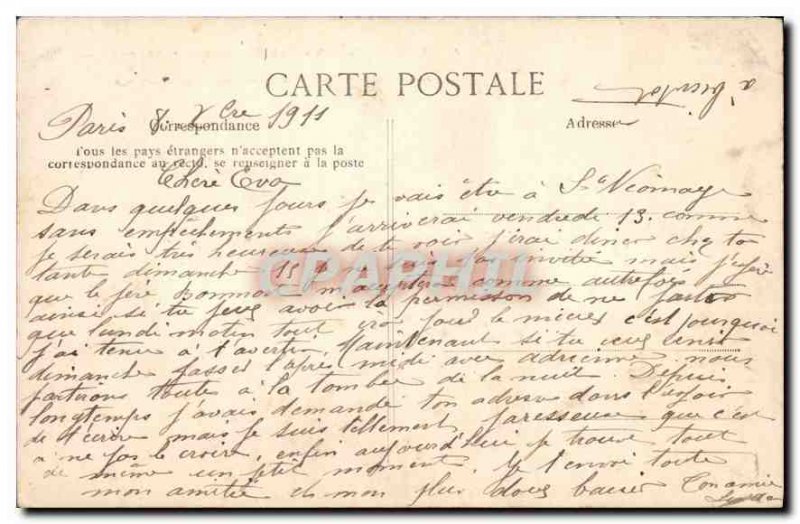 CARTE POSTALE
Paris 8 Xbre 1911
Correspondance
Adresse
Tous les pays étrangers n'acceptent pas la
correspondance au recto. se renseigner à la poste
Chère Eva
Dans quelques jours je vais être à St Néomaye
sans empêchements j'arriverai vendredi 13. comme
je serais très heureuse de te voir j'irai diner chez ta
tante dimanche 15 invitée mais j'espère
que le père m'acceptera comme autrefois
ainsi si tu peux avoir la permission de ne partir
que lundi matin tout ira pour le mieux c'est pourquoi
j'ai tenu à t'avertir. Maintenant si tu veux venir
dimanche passer l'après midi avec adrienne nous
partirons toute à la tombée de la nuit. Depuis
longtemps j'avais demandé ton adresse dans l'espoir
de t'écrire mais je suis tellement paresseuse que c'est
à ne pas le croire, enfin aujourd'hui je trouve tout
de même un p'tit moment. Je t'envoi toute
mon amitié et mon plus doux baiser Ton amie
CPAPHIL